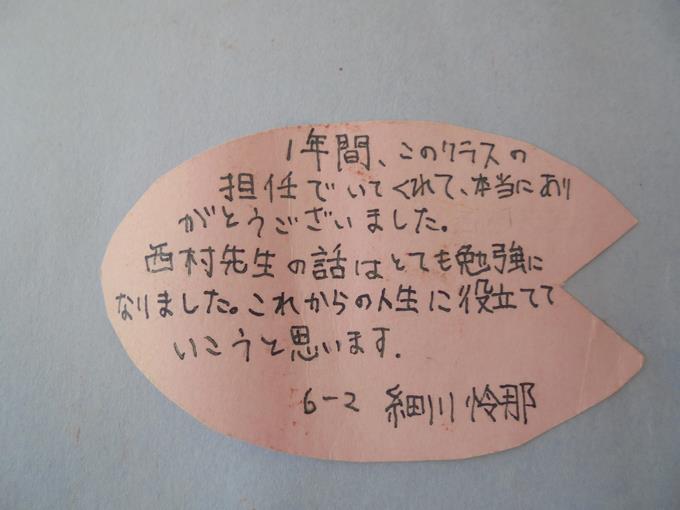 1年間、このクラスの
担任でいてくれて、本当にあり
がとうございました。
西村先生の話はとても勉強に
なりました。これからの人生に役立てて
いこうと思います.
6-2 細川怜那